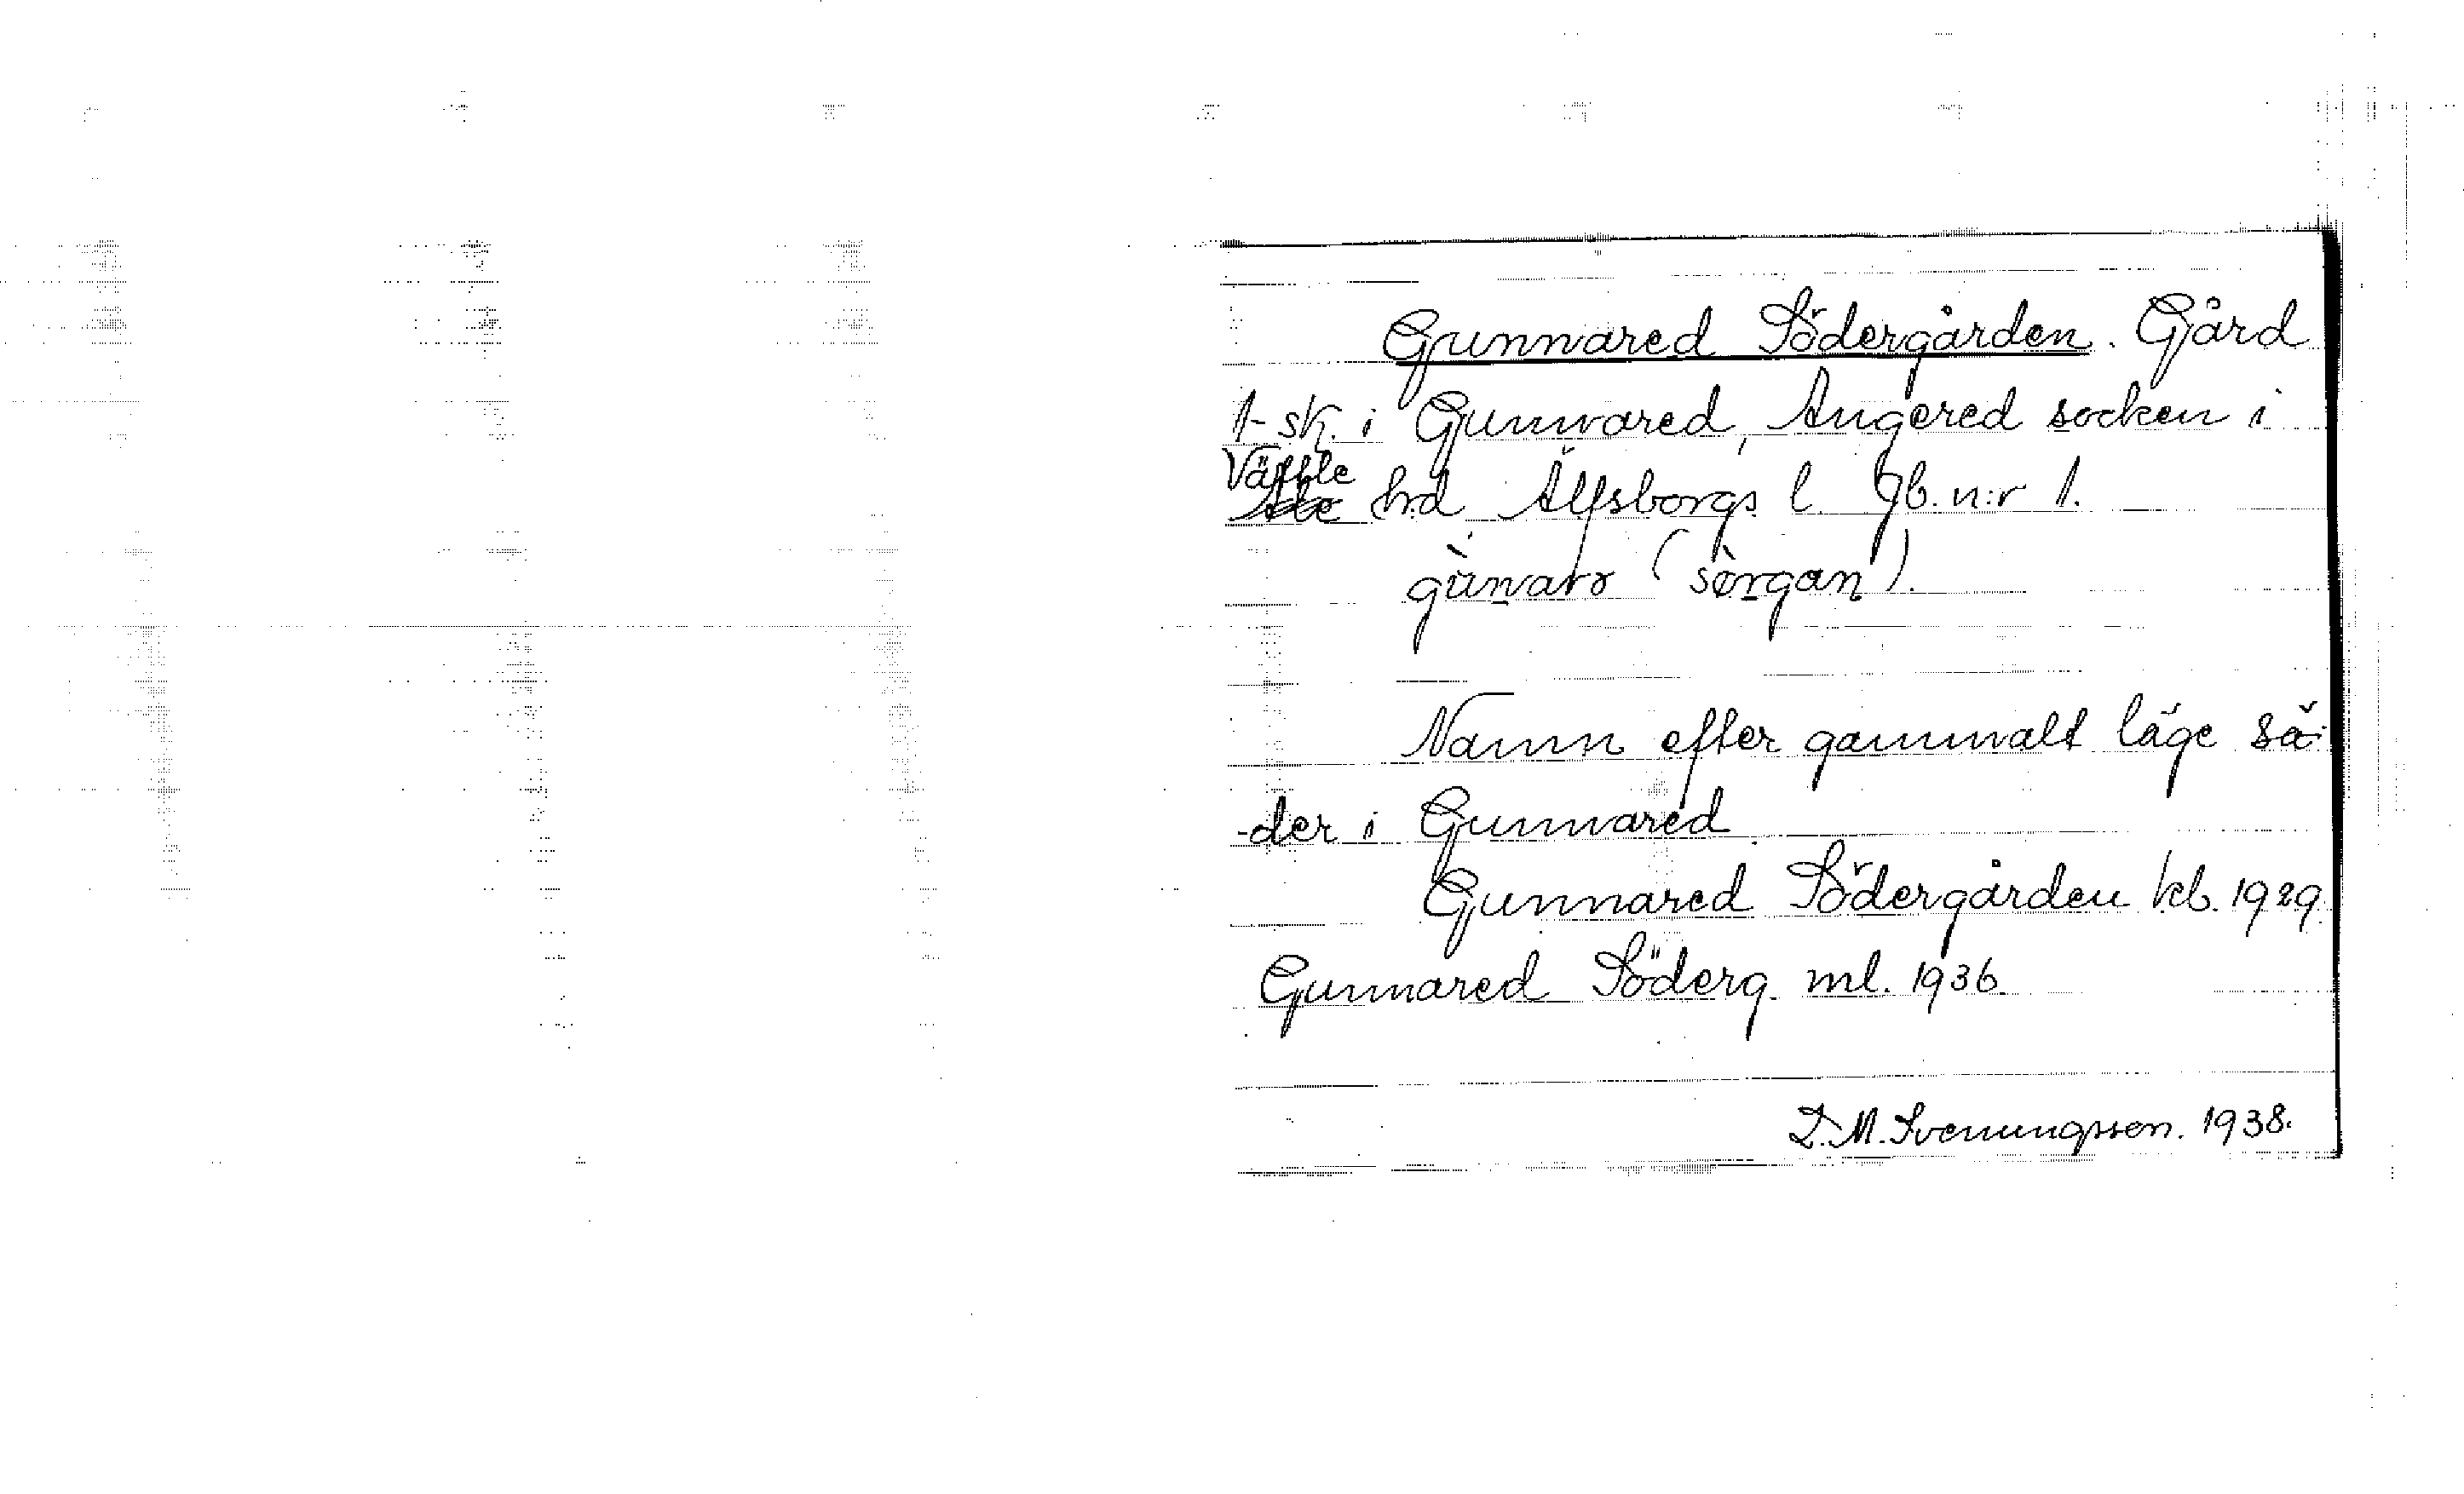 Gunnared Södergården. Gård
1-sk. i Gunnared, Angered socken i
Vättle
Ale hrd Älfsborgs l. Jb. n:r 1.
gùnarə (sørgan).
Namn efter gammalt läge sö-
-der i Gunnared.
Gunnared Södergården kb. 1929
Gunnared Söderg. ml. 1936.
D. M. Svenungsson. 1938.